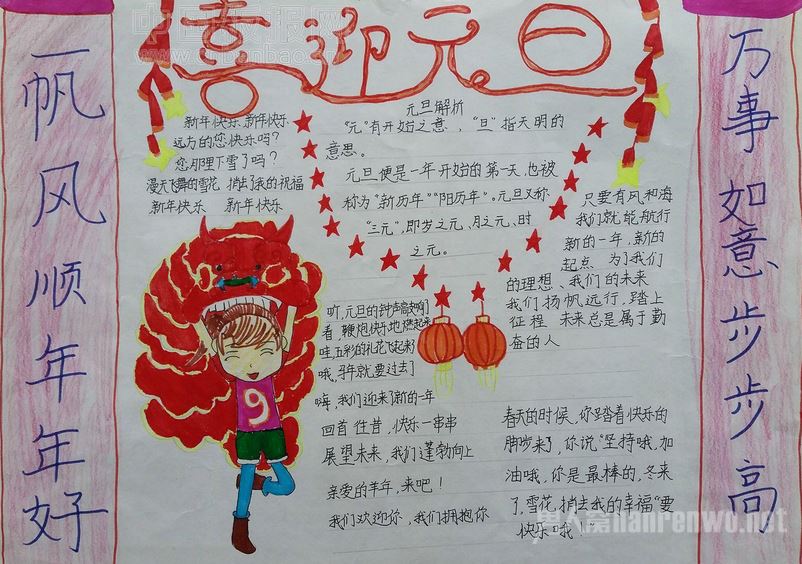 喜迎元旦
一帆风顺年年好
万事如意步步高
新年快乐 新年快乐
远方的您快乐吗?
您那里下雪了吗?
漫天飞舞的雪花 捎去了我的祝福
新年快乐 新年快乐
元旦解析
“元”有开始之意，“旦”指天明的
意思。
元旦便是一年开始的第一天，也被
称为“新历年”“阳历年”。元旦又称
“三元”，即岁之元、月之元、时
之元。
只要有风和海
我们就能航行
新的一年，新的
起点 为了我们
的理想、我们的未来
我们扬帆远行，踏上
征程 未来总是属于勤
奋的人
听，元旦的钟声敲响了
看，鞭炮快乐地燃起来
哇，五彩的礼花飞起来了
哦，马年就要过去了
嗨，我们迎来了新的一年
回首往昔，快乐一串串
展望未来，我们蓬勃向上
亲爱的羊年，来吧！
我们欢迎你，我们拥抱你
春天的时候，你踏着快乐的
脚步来了，你说“坚持哦，加
油哦，你是最棒的，冬来
了，雪花，捎去我的幸福“要
快乐哦！”
9
nanrenwo.net